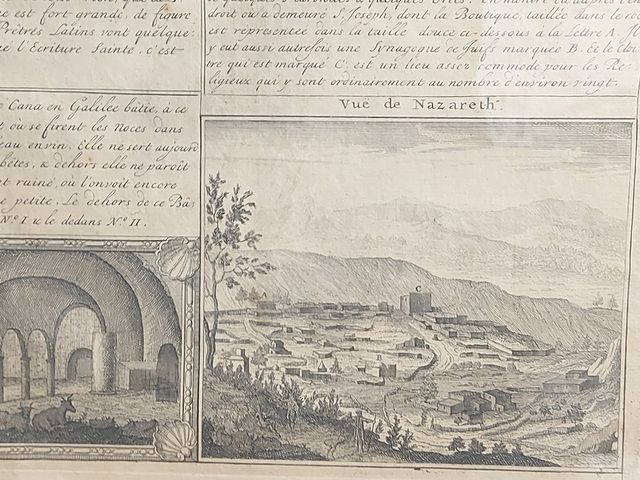 ce est fort grande, de figure
Prêtres Latins vont quelque-
l'Ecriture Sainte, c'est
droit où a demeuré S. Joseph, dont la Boutique, taillée dans le ro
est representée dans la taille douce ci-dessous à la Lettre A. Il
y eut aussi autrefois une Synagogue de Juifs marquée B. Et le Cloi-
tre qui est marqué C. est un lieu assez commode pour les Re-
ligieux qui y sont ordinairement au nombre d'environ vingt.
Cana en Galilée bâtie, à ce
où se firent les Noces dans
eau en vin. Elle ne sert aujourd
bêtes, & dehors elle ne paroît
et ruiné, où l'on voit encore
e petite. Le dehors de ce Bâ-
N.o I & le dedans N.o II.
Vuë de Nazareth.
C